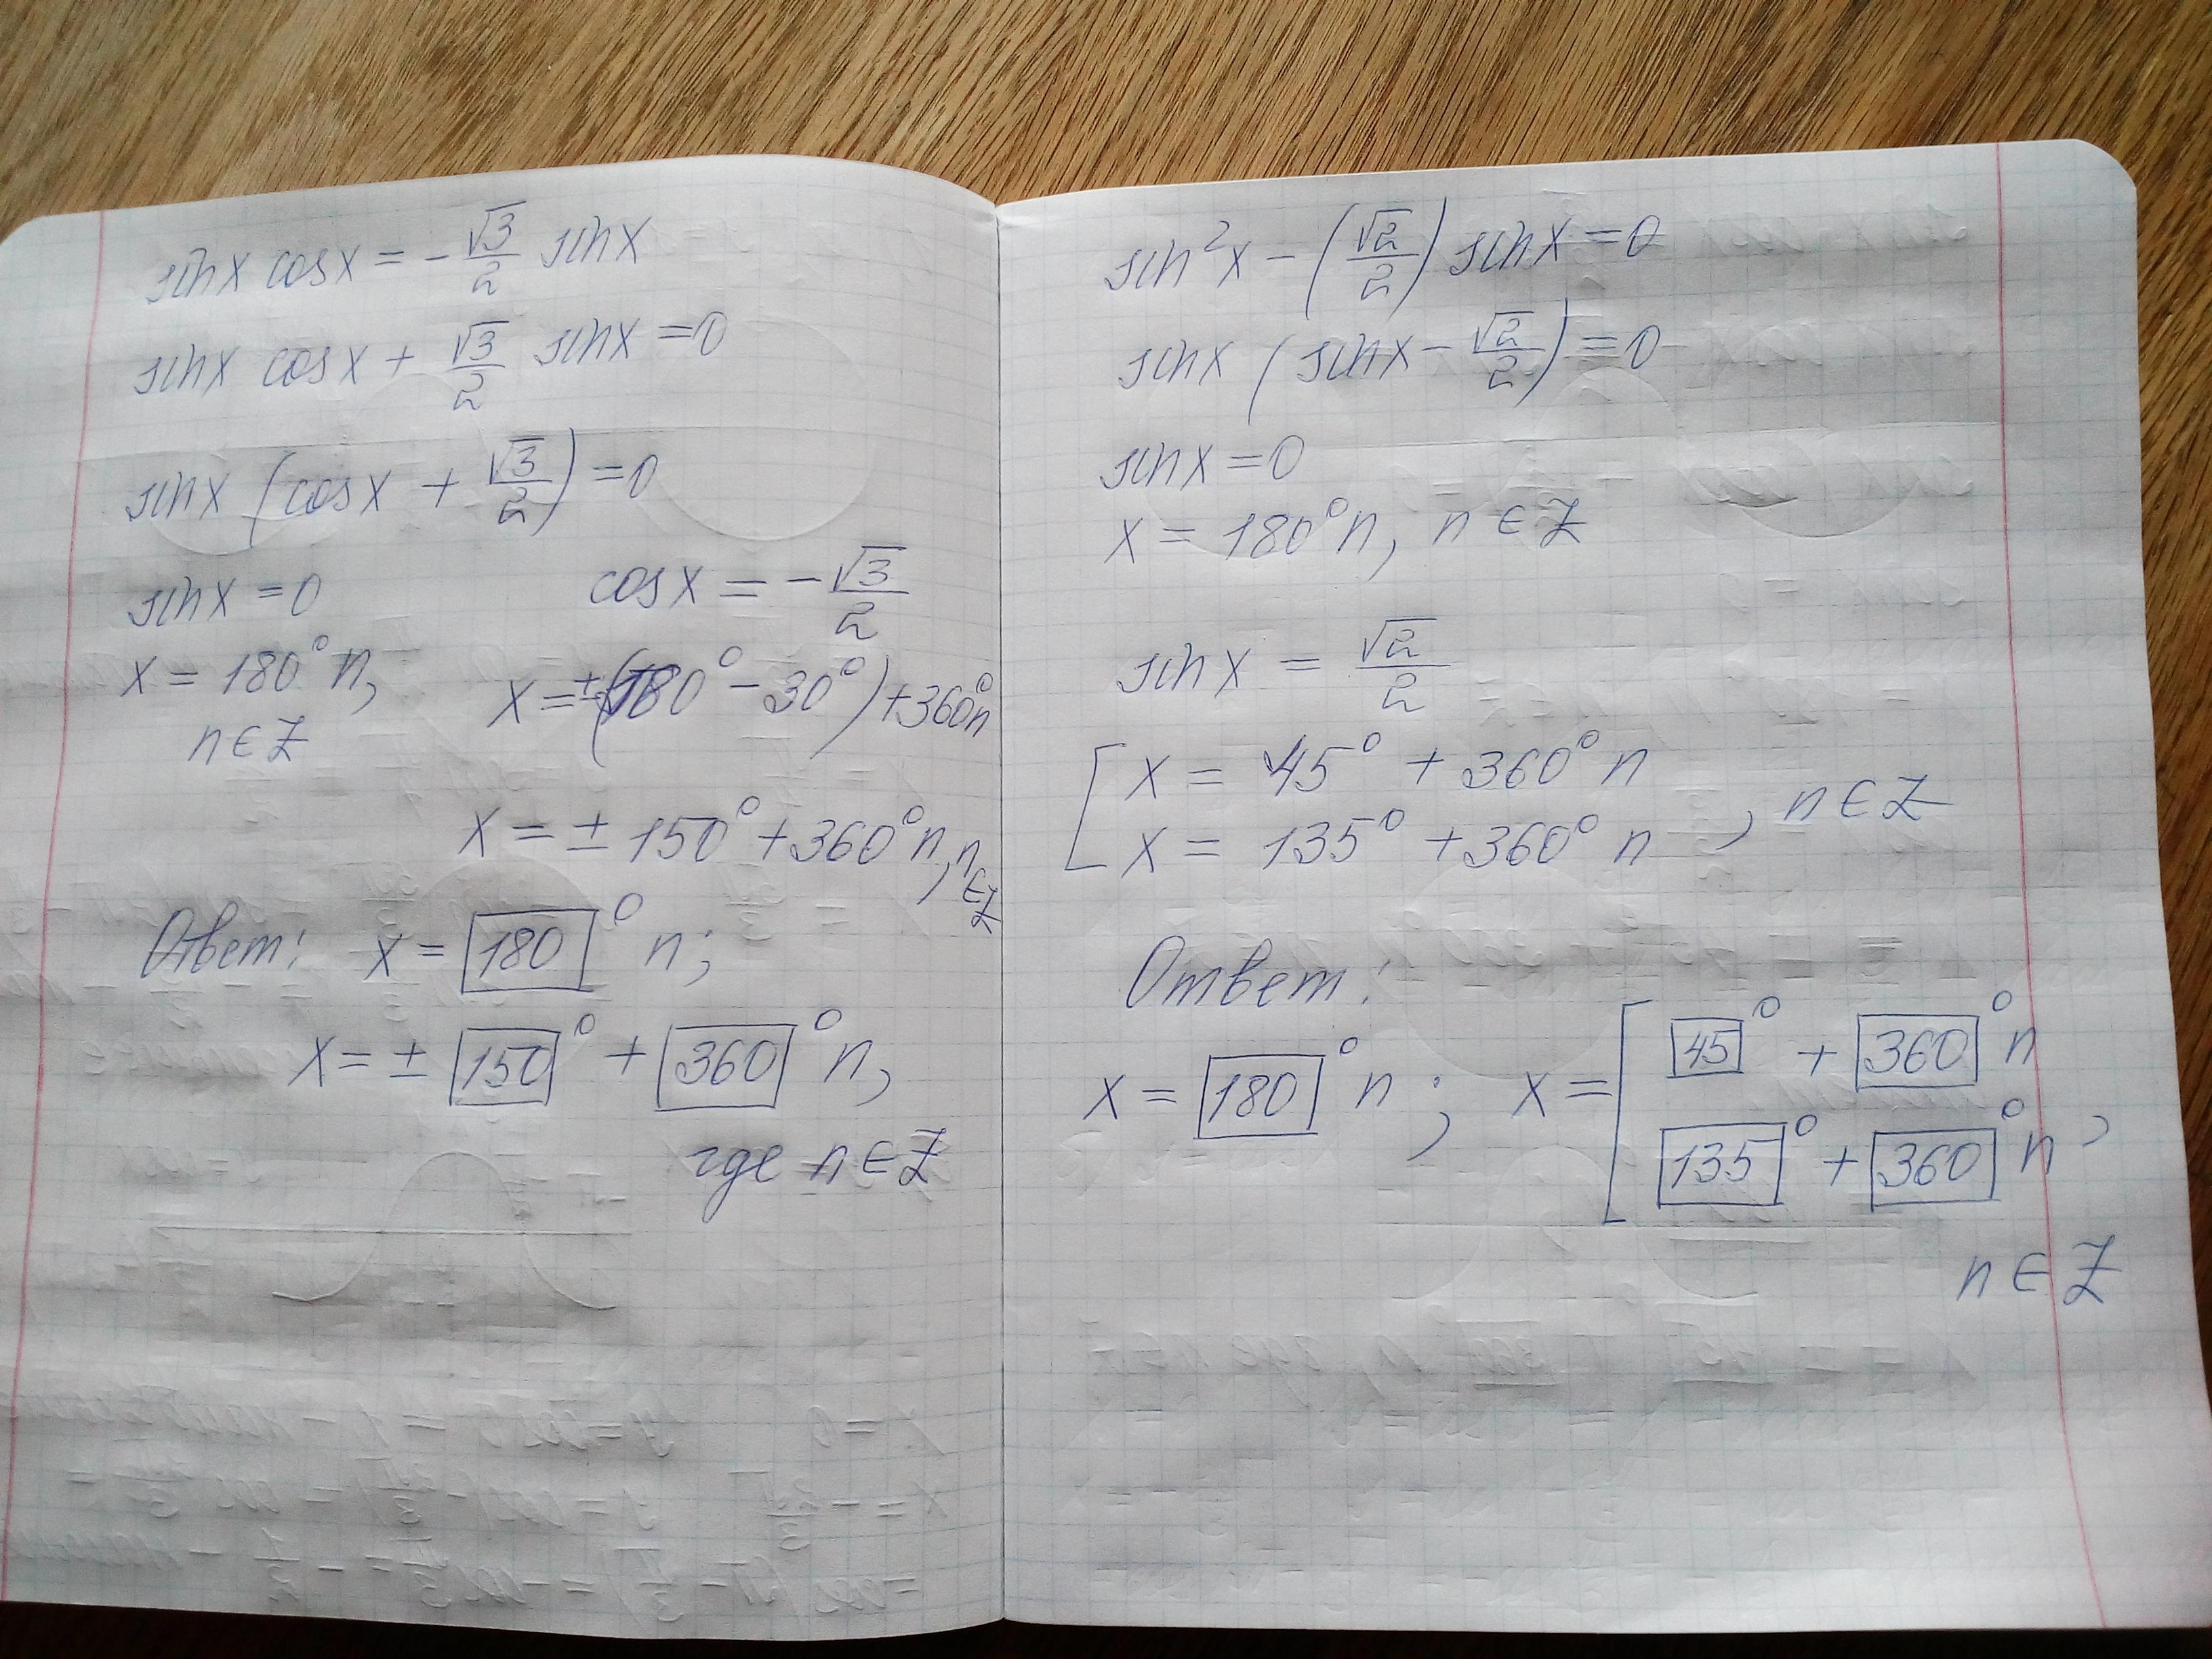 sinx cosx = - √3/2 sinx
sinx cosx + √3/2 sinx = 0
sinx (cosx + √3/2) = 0
sinx = 0
x = 180° n,
n ∈ Z
cosx = - √3/2
x = ±(180° - 30°) + 360°n
x = ± 150° + 360° n, n ∈ Z
Ответ: x = 180° n;
x = ± 150° + 360° n,
где n ∈ Z
sin²x - (√2/2) sinx = 0
sinx (sinx - √2/2) = 0
sinx = 0
x = 180° n, n ∈ Z
sinx = √2/2
[ x = 45° + 360° n
x = 135° + 360° n , n ∈ Z
Ответ:
x = 180° n ; x = [ 45° + 360° n
135° + 360° n ,
n ∈ Z